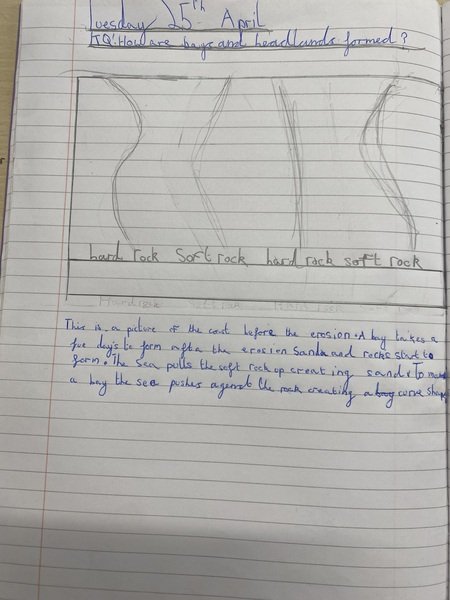 Tuesday 25th April
IQ: How are bays and headlands formed?
hard rock soft rock hard rock soft rock
This is a picture of the cost before the erosion. A bay takes a
five days to form after the erosion Sands and rocks start to
form. The sea pulls the soft rock up creating sand. To make
a bay the sea pushes agenst the rock creating a bay curve shape